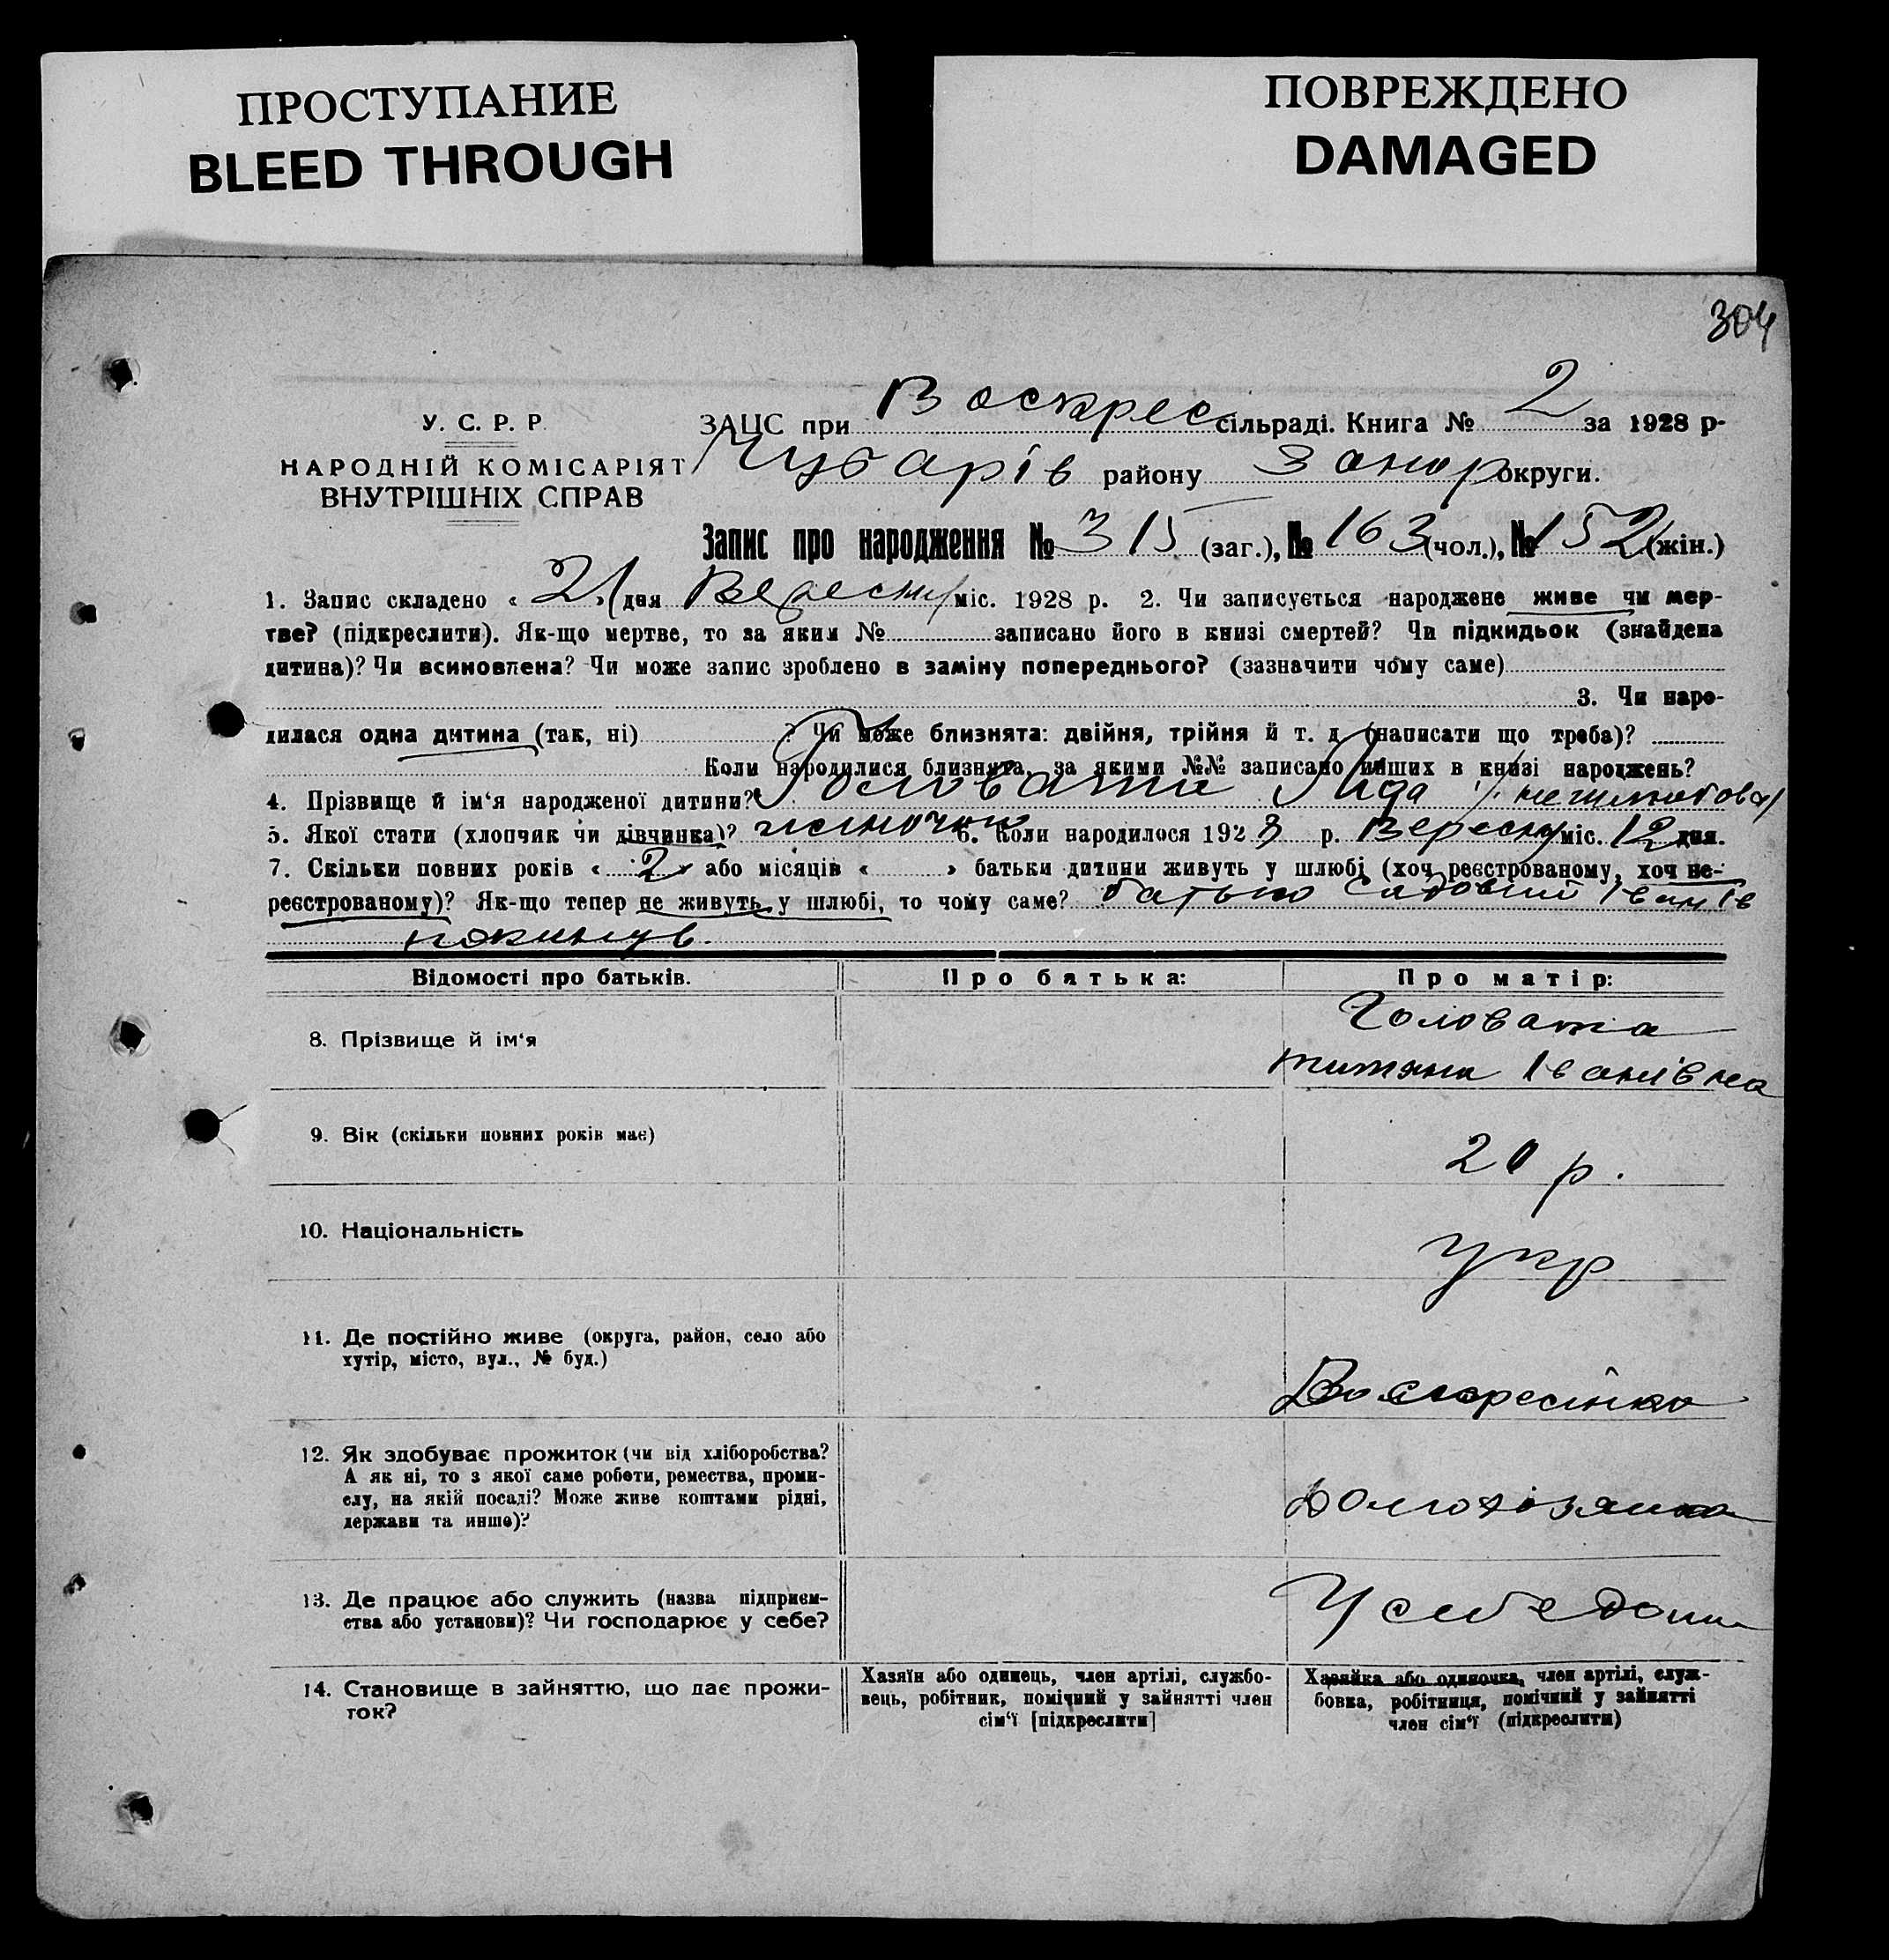 ПРОСТУПАНИЕ
BLEED THROUGH
ПОВРЕЖДЕНО
DAMAGED
304
У. С. Р. Р
НАРОДНІЙ КОМІСАРІЯТ
ВНУТРІШНІХ СПРАВ
ЗАЦС при Воскрес сільраді. Книга № 2 за 1928 р-
Чубарів району Запор округи.
Запис про народження № 315 (заг.), № 163 (чол.), № 152 (жін.)
1. Запис складено « 21 » дня Вересня міс. 1928 р. 2. Чи записується народжене живе чи мер-
тве? (підкреслити). Як-що мертве, то за яким № записано його в книзі смертей? Чи підкидьок (знайдена
дитина)? Чи всиновлена? Чи може запис зроблено в заміну попереднього? (зазначити чому саме)
3. Чи наро-
дилася одна дитина (так, ні) ? Чи може близнята: двійня, трійня й т. д. (написати що треба)?
Коли народилися близнята, за якими №№ записано инших в книзі народжень?
4. Прізвище й ім'я народженої дитини? Головата Ліда
5. Якої стати (хлопчик чи дівчинка)? жіночки 6. Коли народилося 1928 р. Вересня міс. 12 дня.
7. Скільки повних років « 2 » або місяців « » батьки дитини живуть у шлюбі (хоч реєстрованому, хоч не-
реєстрованому)? Як-що тепер не живуть у шлюбі, то чому саме? батько Садовий Іван Ів
покинув.
Відомості про батьків. Про батька: Про матір:
8. Прізвище й ім'я
Головата
Титяна Іванівна
9. Вік (скільки повних років має)
20 р.
10. Національність
укр
11. Де постійно живе (округа, район, село або
хутір, місто, вул., № буд.)
Воскресінка
12. Як здобуває прожиток (чи від хліборобства?
А як ні, то з якої саме роботи, ремества, проми-
слу, на якій посаді? Може живе коштами рідні,
держави та инше)?
домохізяйка
13. Де працює або служить (назва підприєм-
ства або установи)? Чи господарює у себе?
У себе дома
14. Становище в зайняттю, що дає прожи-
ток?
Хазяїн або одинець, член артілі, службо-
вець, робітник, помічний у зайнятті член
сім'ї [підкреслити]
Хазяйка або одиночка, член артілі, служ-
бовка, робітниця, помічний у зайнятті
член сім'ї (підкреслити)